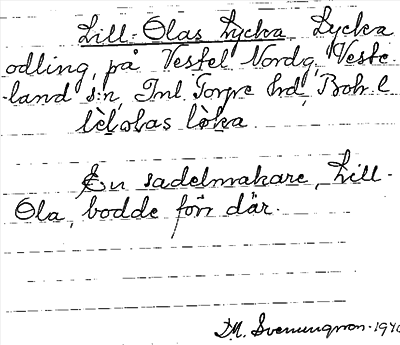 Lill-Olas Lycka. Lycka
odling, på Vestel Nordg, Veste-
land s:n, Inl. Torpe hd, Boh. l
lèlolas lòka.
En sadelmakare, Lill-
Ola, bodde förr där.
D.M. Svenungsson. 1940